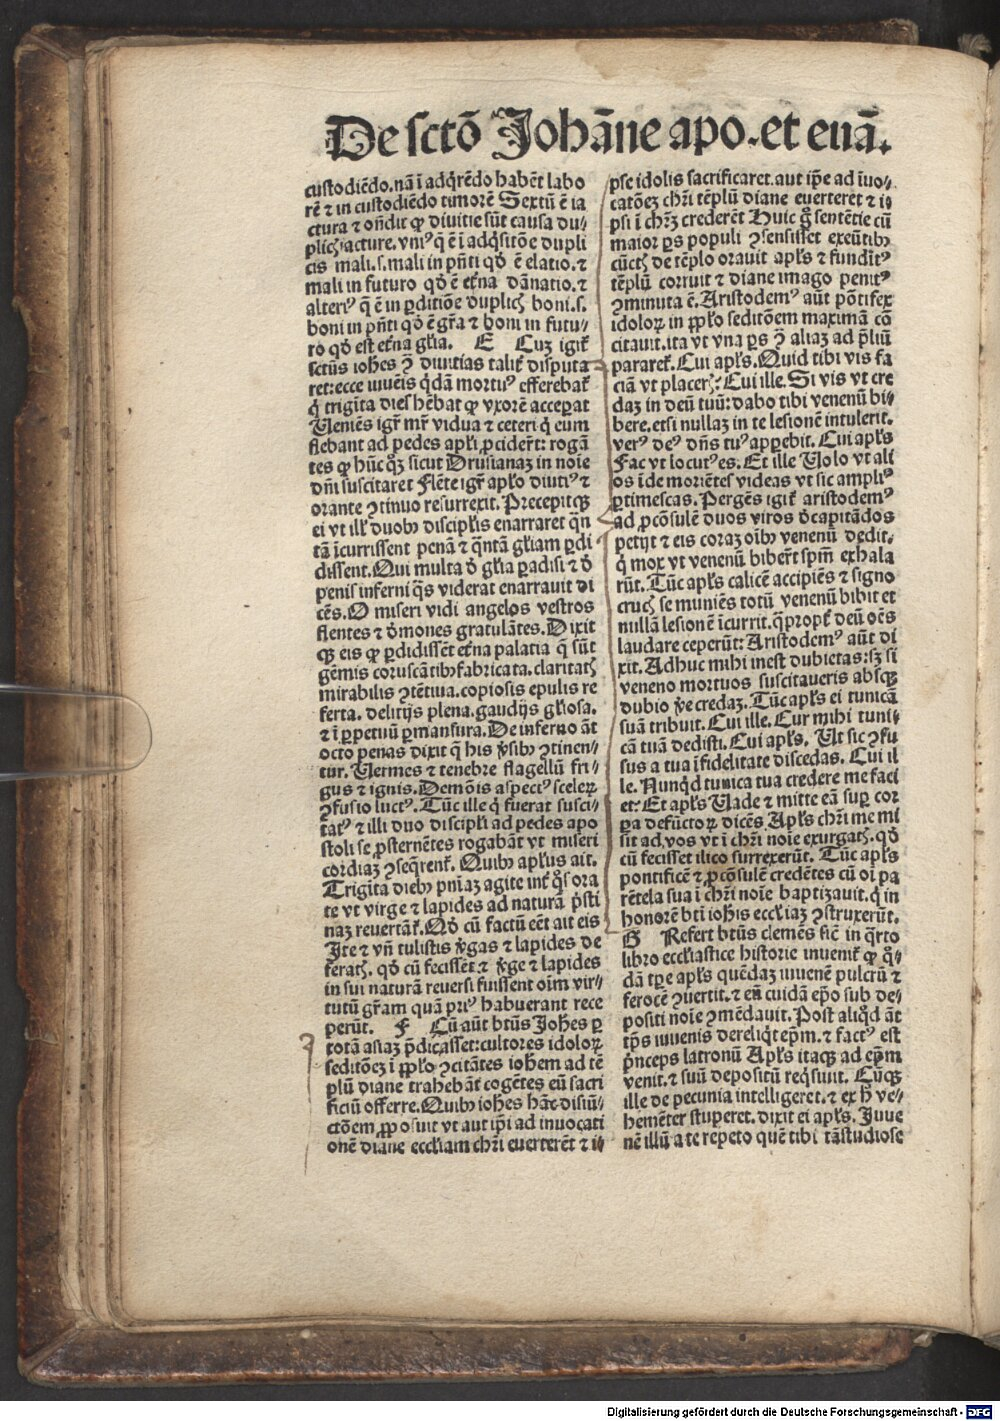 De sctō Johāne apo. et euā.
custodiēdo. nā ī adq̄rēdo habēt labo
rē ⁊ in custodiēdo timorē Sextū ē ia
ctura ⁊ oñdit ꝙ diuitie sūt causa du⸗
plicꝭ iacture. vniꝰ q̄ ē ī adq̄sitōe dupli
cis mali .s. mali in pn̄ti qd̄ ē elatio. ⁊
mali in futuro qd̄ ē et̄na dānatio. ⁊
alteriꝰ q̄ ē in ꝑditiōe duplicꝭ boni .s.
boni in pn̄ti qd̄ ē gr̄a ⁊ boni in futu⸗
ro qd̄ est et̄na gl̄ia. E Cuꝫ igiꞇ̄
sctūs ioh̄es ꝯ̄ diuitias taliꞇ̄ disputa
ret: ecce iuuēis q̄dā mortuꝰ efferebaꞇ̄
q̄ trigīta dies hēbat ꝙ vxorē acceꝑat
Ueniēs igr̄ mr̄ vidua ⁊ ceteri q̄ eum
flebant ad pedes apl̄i ꝓciderūt: rogā
tes ꝙ hūc qꝫ sicut Drusianaꝫ in noīe
dn̄i suscitaret Flēte igr̄ apl̄o diutiꝰ ⁊
orante ꝯtinuo resurrexit. Precepitqꝫ
ei vt ill̄ duobꝫ discipl̄is enarraret q̄n
tā īcurrissent penā ⁊ q̄ntā gl̄iam ꝑdi
dissent. Qui multa d̄ gl̄ia ꝑadisi ⁊ d̄
penis inferni q̄s viderat enarrauit di
cēs. O miseri vidi angelos vestros
flentes ⁊ d̄mones gratulātes. Dixit
qꝫ eis ꝙ ꝑdidissēt et̄na palatia q̄ sūt
gēmis coruscātibꝫ fabricata. claritatꝭ
mirabilis ꝯtētiua. copiosis epulis re
ferta. delitijs plena. gaudijs gl̄iosa.
⁊ ī ꝑpetuū ꝑmansura. De inferno āt
octo penas dixit q̄ his v̄sibꝫ ꝯtinen⸗
tur. Uermes ⁊ tenebre flagellū fri⸗
gus ⁊ ignis. Demōis aspectꝰ sceleꝝ
ꝯfusio luctꝰ. Tūc ille q̄ fuerat susci⸗
tatꝰ ⁊ illi duo discipl̄i ad pedes apo
stoli se ꝓsternētes rogabāt vt miseri
cordiaꝫ ꝯseq̄renꞇ̄. Quibꝫ apl̄us ait.
Trigīta diebꝫ pn̄iaꝫ agite int̄ q̄s ora
te vt virge ⁊ lapides ad naturā p̄sti
naꝫ reuertāꞇ̄. Qd̄ cū factū eēt ait eis
Ite ⁊ vn̄ tulistis v̄gas ⁊ lapides de
feratꝭ. qd̄ cū fecissēt ⁊ v̄ge ⁊ lapides
in sui naturā reuersi fuissent oīm vir⸗
tutū gr̄am quā priꝰ habuerant rece
perūt. F Cū aūt btūs Joh̄es ꝑ
totā asiaꝫ p̄dicasset: cultores idoloꝝ
seditōeꝫ ī ppl̄o ꝯcitātes iohem ad tē
plū diane trahebāt cogētes eū sacri
ficiū offerre. Quibꝫ ioh̄es hāc disiū⸗
ctōem ꝓposuit vt aut ip̄i ad inuocati
onē diane eccl̄iam chr̄i euerterēt ⁊ i⸗
pse idolis sacrificaret. aut ip̄e ad īuo⸗
catōeꝫ chr̄i tēplū diane euerteret ⁊ i⸗
psi ī chr̄ꝫ crederēt Huic g̊ sentētie cū
maior ꝑs populi ꝯsensisset exeūtibꝫ
cūctꝭ de tēplo orauit apl̄s ⁊ fundītꝰ
tēplū corruit ⁊ diane imago penitꝰ
ꝯminuta ē. Aristodemꝰ aūt pōtifex
idoloꝝ in ppl̄o seditōem maximā cō
citauit. ita vt vna ꝑs ꝯ̄ aliaꝫ ad p̄liū
pararet. Cui apl̄s. Quid tibi vis fa
ciā vt placerꝭ? Cui ille. Si vis vt cre
daꝫ in deū tuū: dabo tibi venenū bi⸗
bere. etsi nullaꝫ in te lesionē intulerit.
verꝰ deꝰ dn̄s tuꝰ apꝑebit. Cui apl̄s
Fac vt locutꝰ es. Et ille Uolo vt ali
os īde moriētes videas vt sic ampliꝰ
ꝑtimescas. Pergēs igiꞇ̄ aristodemꝰ
ad ꝓcōsulē duos viros d̄capitādos
petijt ⁊ eis coraꝫ oībꝫ venenū dedit.
q̄ mox vt venenū biberūt spm̄ exhala
rūt. Tūc apl̄s calicē accipiēs ⁊ signo
crucꝭ se muniēs totū venenū bibit et
nullā lesionē īcurrit. q̄propꞇ̄ deū oēs
laudare ceperūt: Aristodemꝰ aūt di
xit. Adhuc mihi inest dubietas: sꝫ si
veneno mortuos suscitaueris absqꝫ
dubio v̄e credaꝫ. Tūc apl̄s ei tunicā
suā tribuit. Cui ille. Cur mihi tuni⸗
cā tuā dedisti. Cui apl̄s. Ut sic ꝯfu
sus a tua īfidelitate discedas. Cui il
le. Nunqd̄ tunica tua credere me faci
et: Et apl̄s Uade ⁊ mitte eā suꝑ cor
ꝑa defūctoꝝ dicēs Apl̄s chr̄i me mi
sit ad vos vt ī chr̄i noīe exurgatꝭ. qd̄
cū fecisset ilico surrexerūt. Tūc apl̄s
pontificē ⁊ ꝓcōsulē credētes cū oī pa
rētela sua ī chr̄i noīe baptizauit. q̄ in
honorē btī ioh̄is eccl̄iaꝫ ꝯstruxerūt.
G Refert btūs clemēs sic̄ in q̄rto
libro eccl̄iastice historie inueniꞇ̄ ꝙ q̄⸗
dā tꝑe apl̄s quēdaꝫ iuuenē pulcrū ⁊
ferocē ꝯuertit. ⁊ eū cuidā ep̄o sub de⸗
positi noīe ꝯmēdauit. Post aliqd̄ āt
tp̄s iuuenis dereliq̄t ep̄m. ⁊ factꝰ est
p̄nceps latronū Apl̄s itaqꝫ ad ep̄m
venit. ⁊ suū depositū req̄suit. Cūqꝫ
ille de pecunia intelligeret. ⁊ ex h̄ ve⸗
hemēter stuperet. dixit ei apl̄s. Juue
nē illū a te repeto quē tibi tā studiose
Digitalisierung gefördert durch die Deutsche Forschungsgemeinschaft - DFG